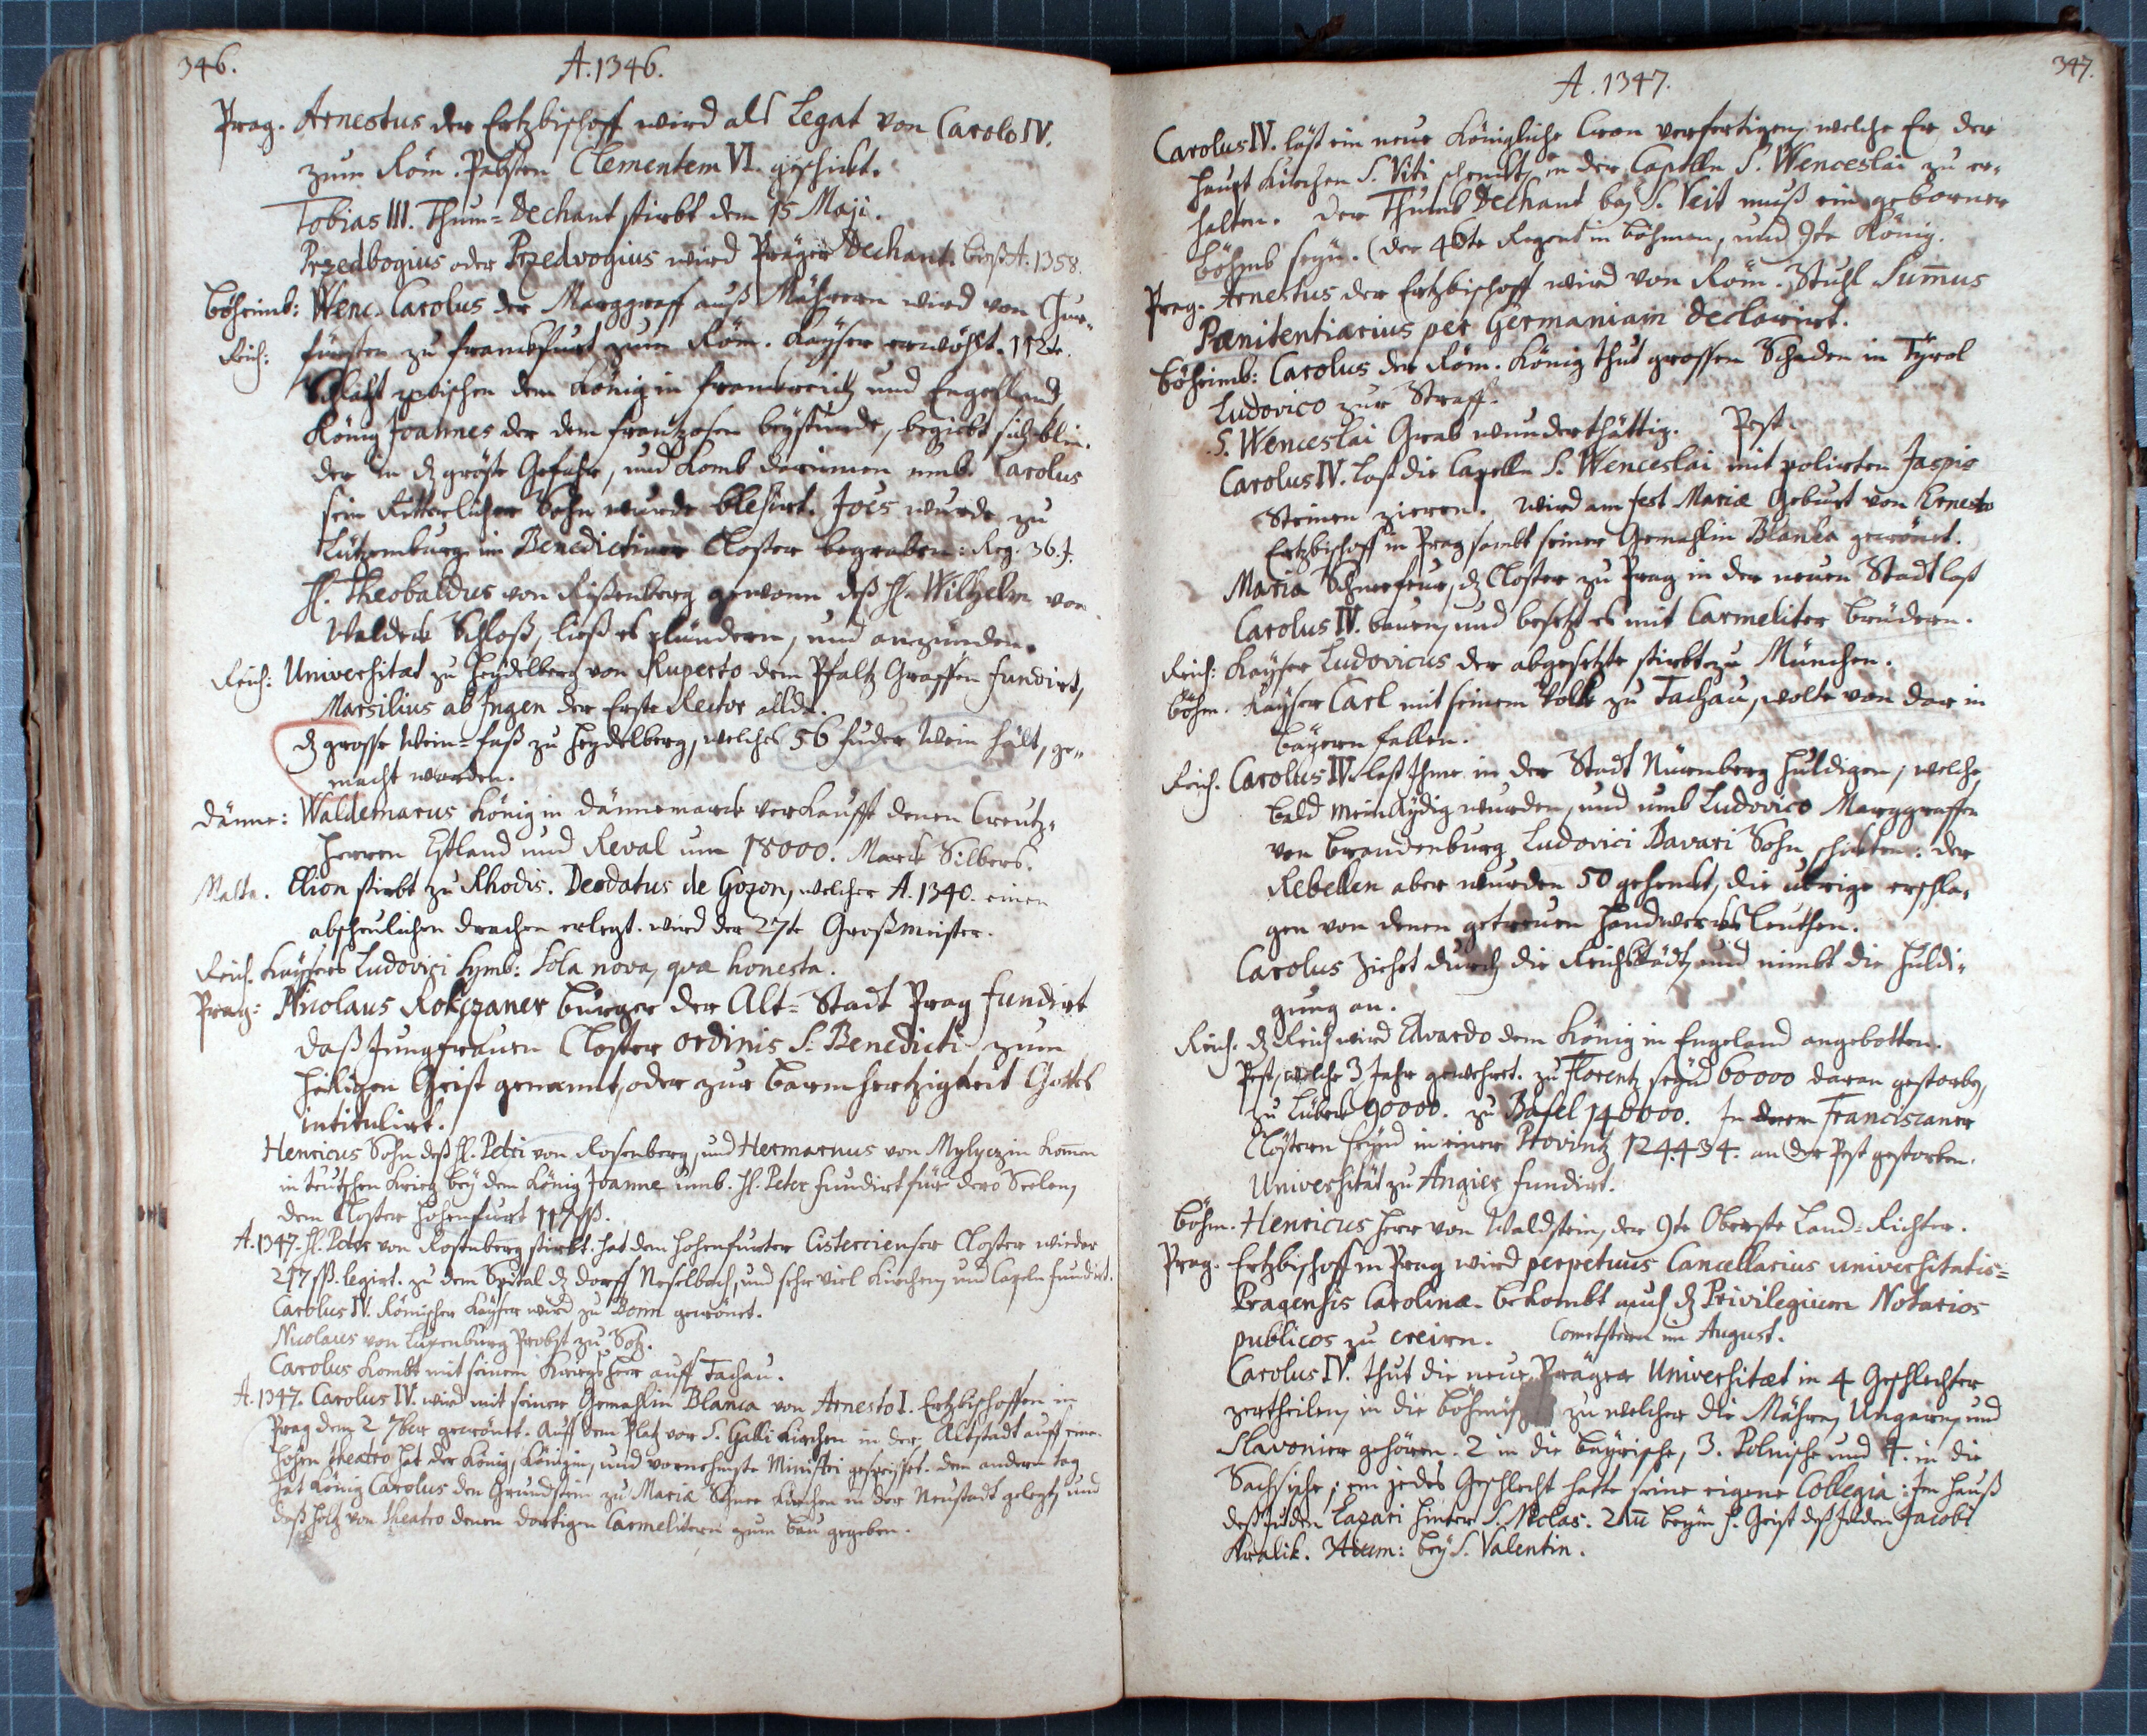 346.
A. 1346.
Prag. Arnestus der Ertzbischoff wird als Legat von Carolo IV.
zum Röm. Pabsten Clementem VI. geschickt.
Tobias III. Thum-Dechant stirbt den 15 Maji.
Przedbogius oder Przedvogius wird Präger Dechant. biß A. 1358.
Böheimb: Wenc. Carolus der Marggraff auß Mähren wird von Chur-
Reich: fürsten zu Franckfurt zum Röm. Kayser erwöhlt. 112te.
Schlacht zwischen dem König in Franckreich und Engelland,
König Joannes der dem Frantzosen beystunde, begiebt sich blin-
der in dz gröste Gefahr, und komb darinnen umb. Carolus
sein Ritterlicher Sohn wurde blesirt. Joes wurde zu
Lützemburg im Benedictiner Closter begraben: Reg. 36. J.
H. Theobaldus von Rißenberg gewonn deß H. Wilhelm von
Waldeck Schloß, ließ es plündern, und anzünden.
Reich: Universitæt zu Heydelberg von Ruperto dem Pfaltz Graffen fundirt,
Marsilius ab Ingen der Erste Rector allda.
dz grosse Wein-faß zu Heydelberg, welches 56 fuder Wein hält, ge-
macht worden.
Dänne: Waldemarus König in Dännemarck verkaufft denen Creutz-
herren Estland und Reval um 18000. Marck Silbers.
Malta. Elion stirbt zu Rhodis. Deodatus de Gozon, welcher A. 1340. einen
abscheulichen drachen erlegt. wird der 27te Großmeister.
Reich. Kaysers Ludovici Symb: Sola nova, qvæ honesta.
Prag: Nicolaus Rokczaner burger der Alt-Stadt Prag fundirt
daß Jungfrauen Closter ordinis S. Benedicti zum
Heiligen Geist genannt, oder zur barmhertzigkeit Gottes
intitulirt.
Henricus Sohn deß H. Petri von Rosenberg, und Hermarnus von Mylyczin komen
in teutschen Krieg bey dem König Joanne umb. H. Peter fundirt für dero Seelen,
dem Closter Hohenfurt 117 ß.
A. 1347. H. Peter von Rosenberg stirbt. hat dem Hohenfurter Cistercienser Closter wieder
217 ß. legirt. zu dem Spital dz dorff Neselbach, und sehr viel Kirchen, und Capeln fundirt.
Carolus IV. Römischer Kayser wird zu Bonn gecrönet.
Nicolaus von Luxenburg Probst zu Satz.
Carolus kombt mit seinem Kriegs Heer auff Tachau.
A. 1347. Carolus IV. wird mit seiner Gemahlin Blanca von Arnesto I. Ertzbischoffen in
Prag den 2 7ber gecrönt. Auff dem Platz vor S. Galli Kirchen in der Altstadt auff eine
hohen theatro hat der König, Königin, und vornehmste Ministri gespeisset. den andern tag
hat König Carolus den Grundstein zu Mariæ Schnee Kirchen in der Neustadt gelegt, und
daß Holtz von theatro denen dortigen Carmelitern zum bau gegeben.
347.
A. 1347.
Carolus IV. läst ein neue Königliche Cron verfertigen, welche Er der
Haupt Kirchen S. Viti schenckt, in der Capelln S. Wenceslai zu er-
halten. Der Thumb Dechant bey S. Veit muß ein geborner
böhmb seyn. (der 46te Regent in böhmen, und 9te König.
Prag. Arnestus der Ertzbischoff wird von Röm. Stuhl Sum̄us
Pænitentiarius per Germaniam declarirt.
Böheimb: Carolus der Röm. König thut grossen Schaden in Tyrol
Ludovico zur Straff.
S. Wenceslai Grab wunderthättig. Pest.
Carolus IV. last die Capelln S. Wenceslai mit polirten Jaspis
Steinen zieren. wird am fest Mariæ Geburt von Ernesto
Ertzbischoff in Prag sambt seiner Gemahlin Blanka gecrönet.
Maria Schneefeur, dz Closter zu Prag in der neuen Stadt last
Carolus IV. bauen, und besetzt es mit Carmeliter brüdern.
Reich: Kayser Ludovicus der abgesetzte stirbt zu München.
Böhm. Kayser Carl mit seinem Volk zu Tachau, wolte von dar in
Bayern fallen.
Reich. Carolus IV. last Ihme in der Stadt Nürnberg huldigen, welche
bald Meinäydig wurden, und umb Ludovico Marggraffen
von Brandenburg Ludovici Bavari Sohn schickten: der
Rebellen aber wurden 50 gehenckt, die ubrige erschla-
gen von denen getreuen Handwercks Leuthen.
Carolus ziehet durch die Reichsstädt, und nimbt die Huldi-
gung an.
Reich. dz Reich wird Edvardo dem König in Engeland angebotten.
Pest, welche 3 Jahr gewehret. zu Florentz seynd 60000 daran gestorben,
zu Lübeck 90000. zu Basel 140000. In Franciscaner
Clöstern seynd in einer Provintz 124434. an der Pest gestorben.
Universitæt zu Angier fundirt.
Böhm. Henricus Herr von Waldstein, der 9te Oberste Land-Richter.
Prag. Ertzbischoff in Prag wird perpetuus Cancellarius universitatis-
Pragensis Carolinæ. bekombt auch dz Privilegium Notarios
publicos zu creirn. Cometstern im August.
Carolus IV. thut die neue Präger Universitæt in 4 Geschlechter
zertheilen, in die böhmische zu welcher die Mähren, Ungaren, und
Slavonier gehören. 2 in die bayrische, 3. Polnische und 4. in die
Sachsische; ein jedes Geschlecht hatte seine eigene Collegia: Im Hauß
deß Juden Lazari hinter S. Niclas. beym H. Geist deß Juden Jacobi
Kralik. bey S. Valentin.